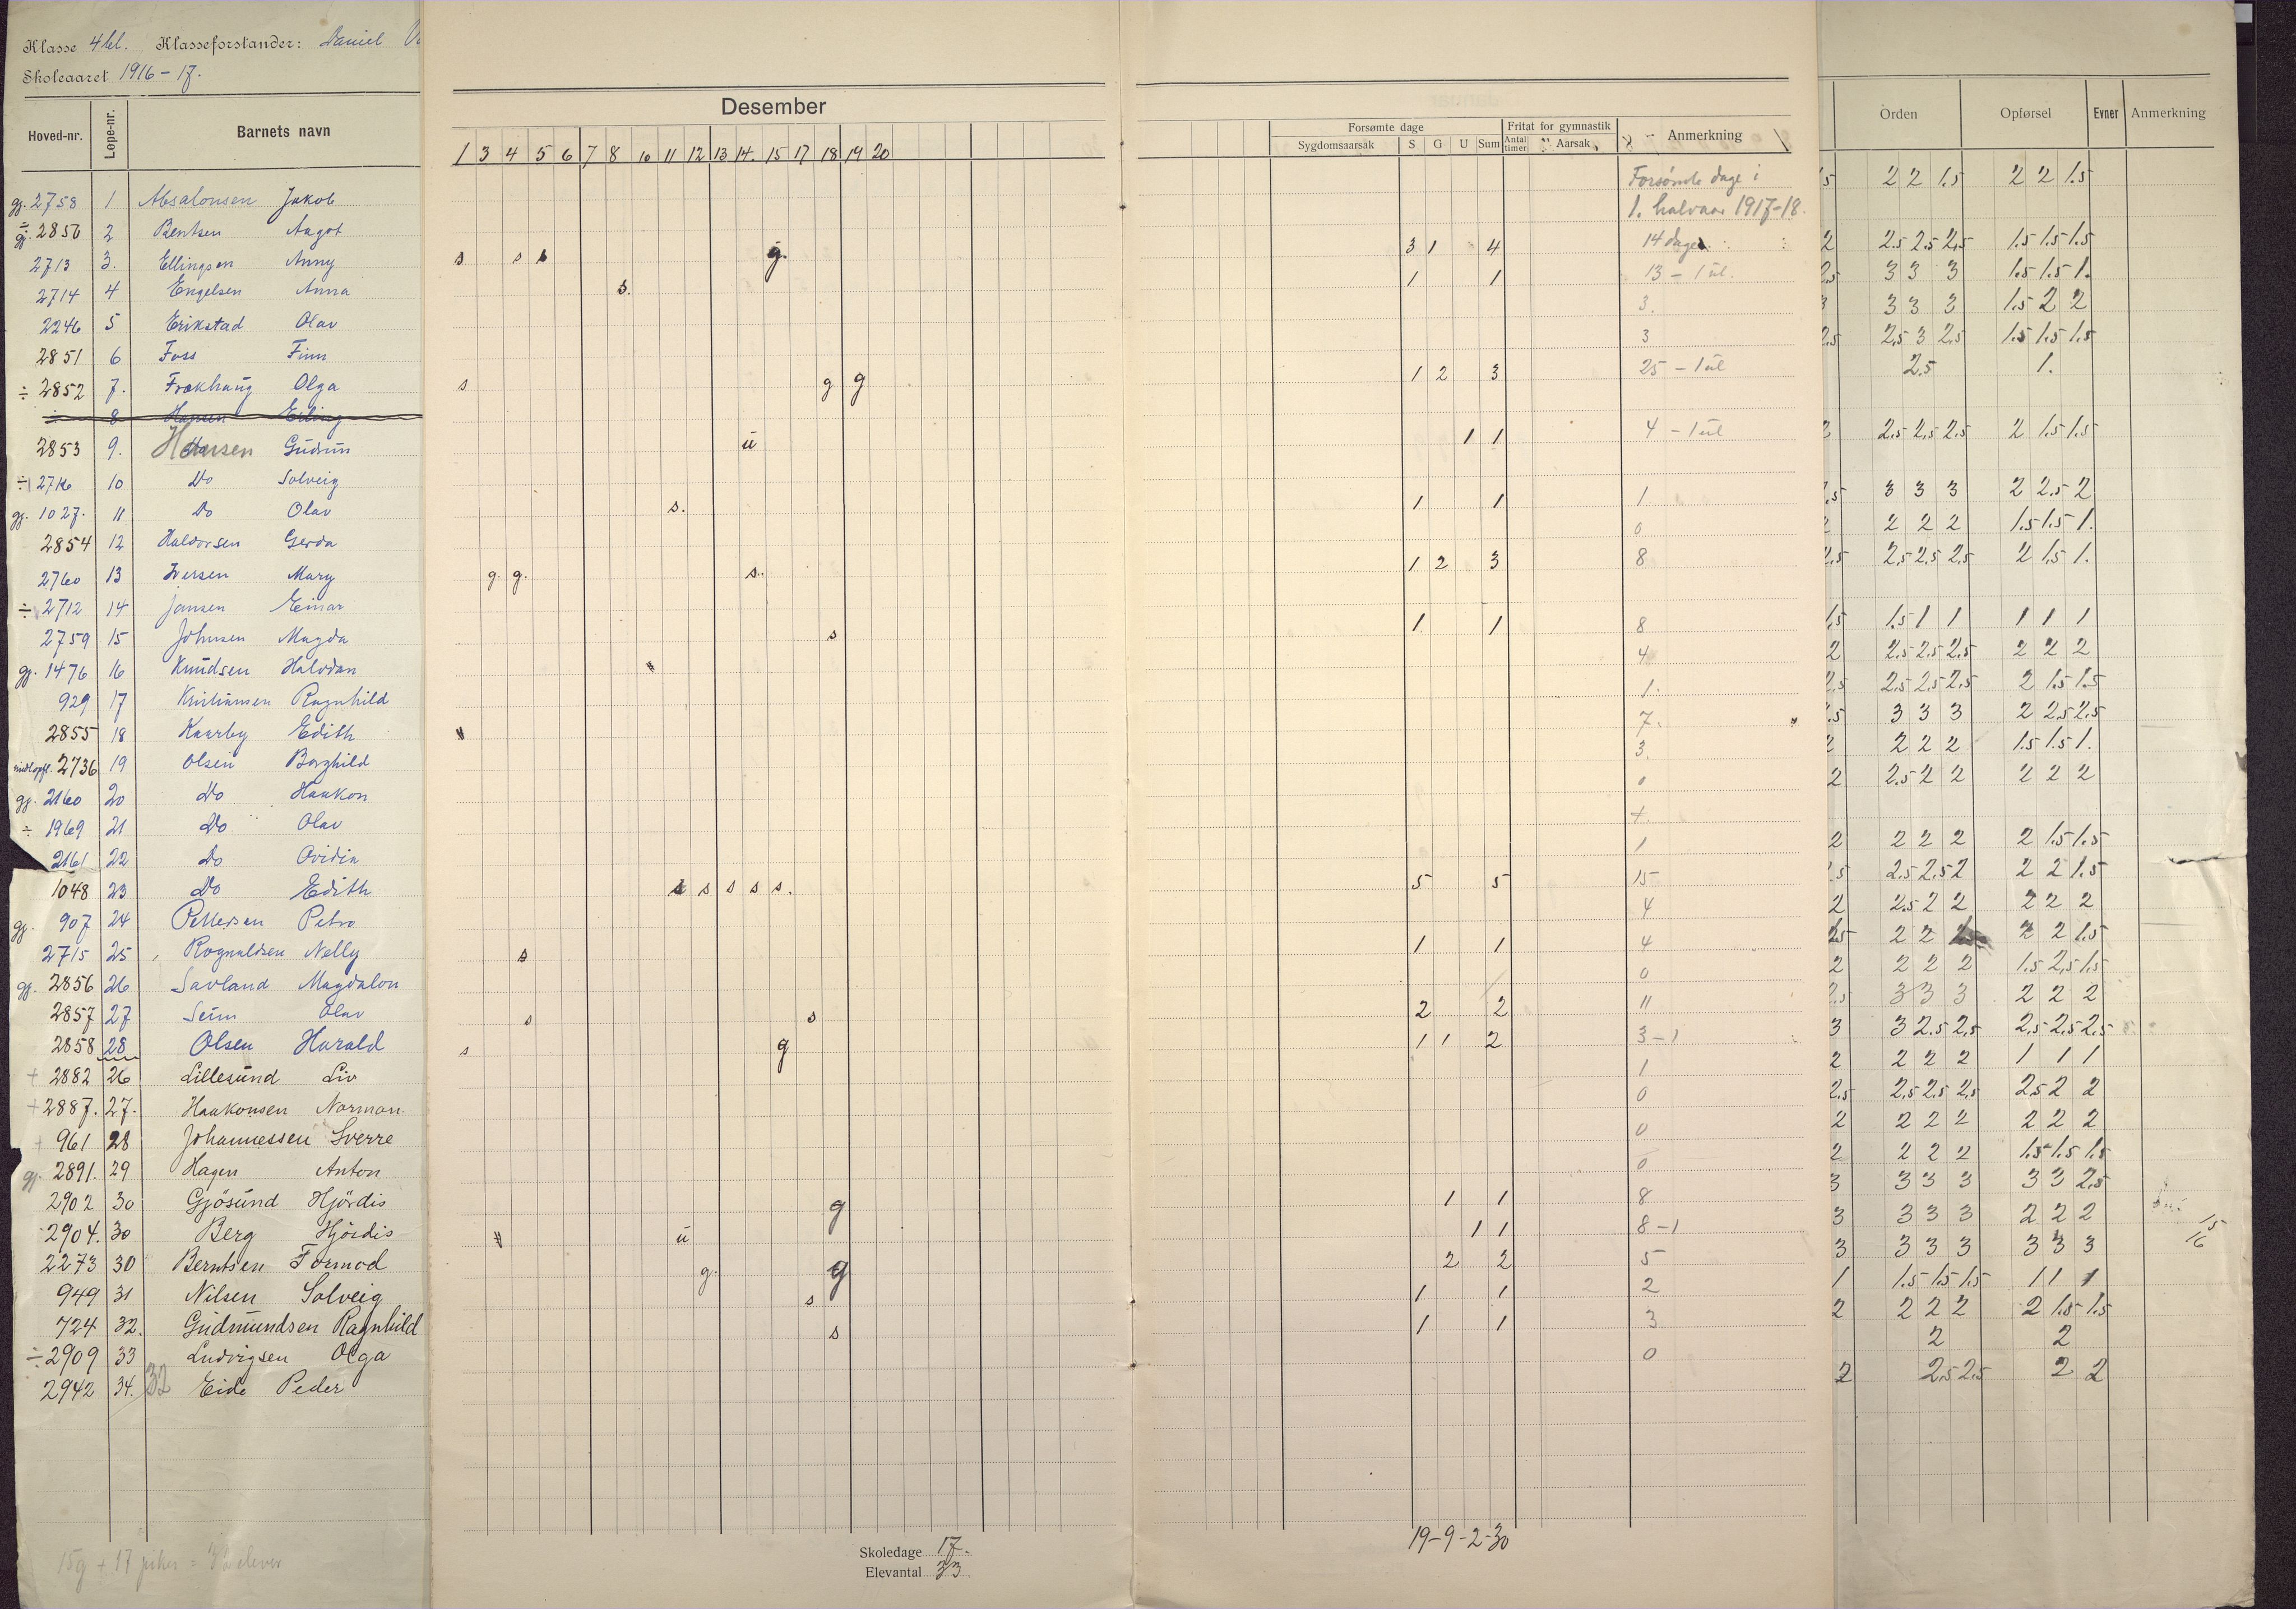 Klasse 4 bl. Klasseforstander: Daniel
Skoleaaret 1916-17.
Hoved-nr. Løpe-nr. Barnets navn
gj. 2758 1 Absalonsen Jakob
gj. 2856 2 Bentsen Aagot
2713 3. Ellingsen Anny
2714 4 Engelsen Anna
2246 5 Erikstad Olav
2851 6 Foss Finn
÷ 2852 7. Frakhaug Olga
8 Hansen Erling
2853 9. Hansen Gudrun
÷ 2716 10 Do Solveig
gj. 1027. 11 Do Olav
2854 12 Haldorsen Gerda
2760 13 Iversen Mary
÷ 2712 14 Jansen Einar
2759 15 Johnsen Magda
gj. 1476 16 Knudsen Halvdan
929 17 Kristiansen Ragnhild
2855 18 Kaarby Edith
2736 19 Olsen Borghild
gj. 2160 20 Do Haakon
÷ 1969 21 Do Olav
2161 22 Do Ovidia
1048 23 Do Edith
gj. 907 24 Pettersen Petra
2715 25 Rognaldsen Nelly
gj. 2856 26 Savland Magdalon
2857 27 Seim Olav
2858 28 Olsen Harald
+ 2882 26 Lillesund Liv
+ 2887. 27. Haakonsen Norman
+ 961 28 Johannessen Sverre
gj. 2891. 29 Hagen Anton
2902 30 Gjösund Hjördis
2904. 30 Berg Hjördis
2273 30 Berntsen Tormod
949 31 Nilsen Solveig
724 32. Gudmundsen Ragnhild
÷ 2909 33 Ludvigsen Olga
2942 34. 32 Eide Peder
15g + 17 piker = 32 elever
Desember
1 3 4 5 6 7 8 10 11 12 13 14. 15 17 18 19 20
s s s g.
s.
s g g
ü
s.
g. g. s.
s
s s s s s.
s
s s
s g
g
ü
g. g
s
s
Skoledage 17.
Elevantal 33.
Forsømte dage Fritat for gymnastik Anmerkning
Sygdomsaarsak S G U Sum Antal timer Aarsak
Forsømte dage i
1. halvaar 1917-18.
3 1 4 14 dage
1 1 13 - 1 ul.
3.
3
1 2 3 25 - 1 ul
1 1 4 - 1 ul
1 1 1
0
1 2 3 8
1 1 8
4
1.
7.
3.
0
+
1
5 5 15
4
1 1 4
0
2 2 11
1 1 2 3-1
1
0
0
0
1 1 8
1 1 8-1
2 2 5
1 1 2
1 1 3
0
19-9-2-30
Orden Opførsel Evner Anmerkning
2 2 1.5 2 2 1.5
2 2.5 2.5 2.5 1.5 1.5 1.5
2.5 3 3 3 1.5 1.5 1.
3 3 3 3 1.5 2 2
2.5 2.5 3 2.5 1.5 1.5 1.5
2.5 1.
2 2.5 2.5 2.5 2 1.5 1.5
3 3 3 2 2.5 2
2 2 2 2 1.5 1.5 1.
2.5 2.5 2.5 2.5 2 1.5 1.
1.5 1.5 1 1 1 1 1
2 2.5 2.5 2.5 2 2 2
2.5 2.5 2.5 2.5 2 1.5 1.5
3 3 3 2 2.5 2.5
2 2 2 2 1.5 1.5 1.
2 2.5 2 2 2 2 2
2 2 2 2 2 1.5 1.5
2.5 2.5 2 2 2 1.5
2 2.5 2 2 2 2 2
2 2 2 2 1.5
2 2 2 2 1.5 2.5 1.5
2.5 3 3 3 2 2 2
3 3 2.5 2.5 2.5 2.5 2.5
2 2 2 2 1 1 1
2.5 2.5 2.5 2.5 2.5 2 2
2 2 2 2 2 2 2
2 2 2 2 1.5 1.5 1.5
3 3 3 3 3 3 2.5
3 3 3 3 2 2 2 15
3 3 3 3 3 3 3 16
1 1.5 1.5 1.5 1 1 1
2 2 2 2 2 1.5 1.5
2 2
2 2.5 2.5 2 2